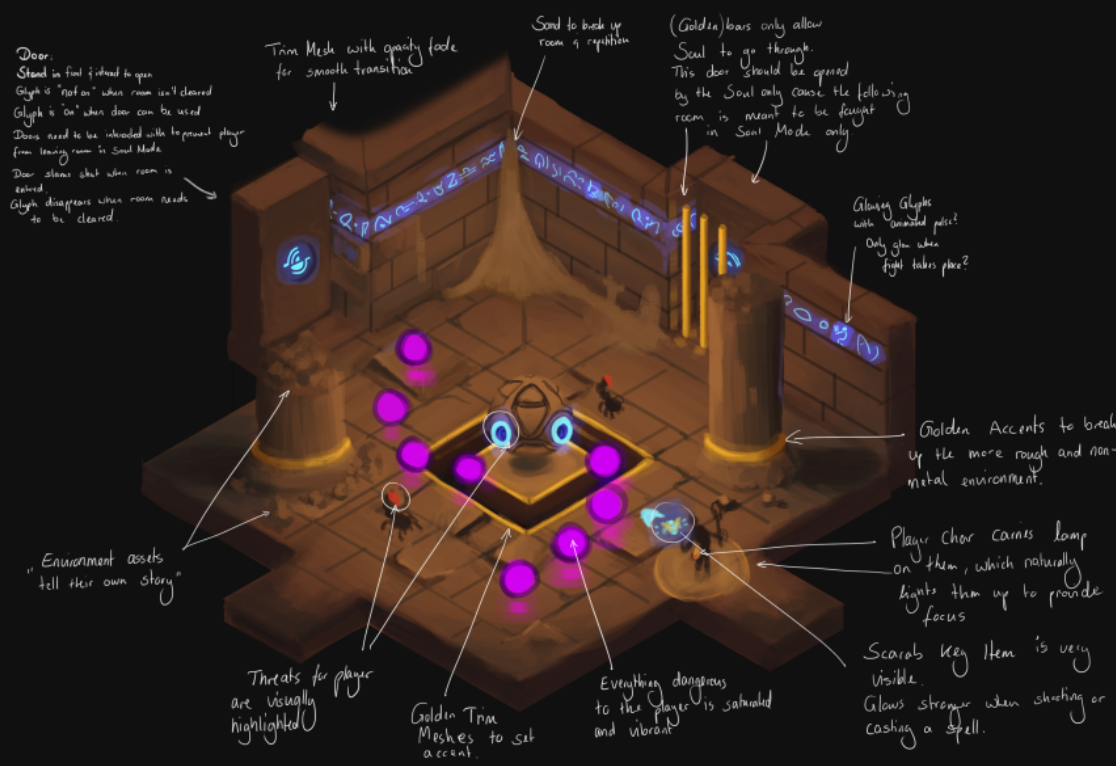 Door:
Stand in front & interact to open
Glyph is "not on" when room isn't cleared
Glyph is "on" when door can be used
Doors need to be interacted with to prevent player
from leaving room in Soul Mode
Door slams shut when room is
entered.
Glyph disappears when room needs
to be cleared.
Trim Mesh with opacity fade
for smooth transition
Sand to break up
room & repetition
(Golden) bars only allow
Soul to go through.
This door should be opened
by the Soul only cause the following
room is meant to be fought
in Soul Mode only
Glowing Glyphs
with animated pulse?
Only glow when
fight takes place?
Golden Accents to break
up the more rough and non-
metal environment.
Player Char carries lamp
on them, which naturally
lights them up to provide
focus
Scarab Key Item is very
visible.
Glows stronger when shooting or
casting a spell.
"Environment assets
tell their own story"
Threats for player
are visually
highlighted
Golden Trim
Meshes to set
accent.
Everything dangerous
to the player is saturated
and vibrant